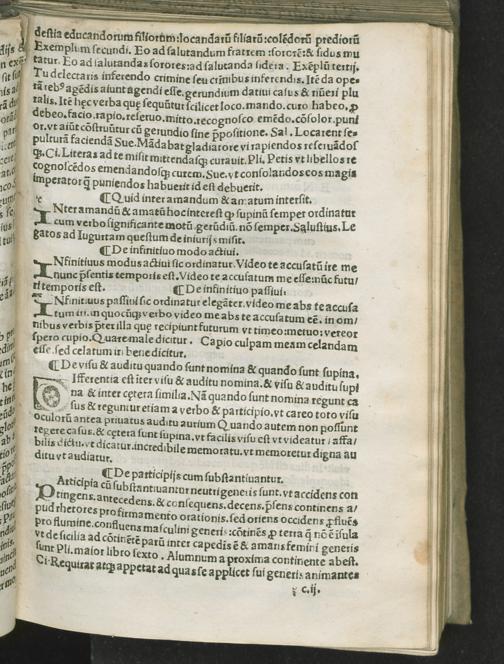 destia educandorum filiorum: locandarū filiarū: colēdorū prediorū
Exemplum secundi. Eo ad salutandum fratrem: sororē: & sidus mu
tatur. Eo ad salutandas sorores: ad salutanda sidera. Exēplū tertij.
Tu delectaris inferendo crimine seu crimibus inferendis. Itē da ope
rā rebꝰ agēdis aiunt agendi esse. gerundium datiui casus & nūeri plu
ralis. Itē hęc verba que sequūtur scilicet loco. mando. curo habeo, ꝓ
debeo. facio. rapio. reseruo. mitto. recognosco emēdo. cōsolor. puni
or. vt aiūt cōstruūtur cū gerundio sine p̄positione. Sal. Locarent se
pulturā faciendā Sue. Mādabat gladiatore vi rapiendos reseruādos
qꝫ. Ci. Literas ad te misit mittendasqꝫ curauit. Pli. Petis vt libellos re
cognoscēdos emendandosqꝫ curem. Sue. vt consolandos eos magis
imperator q̄ puniendos habuerit id est debuerit.
¶ Quid inter amandum & amatum intersit.
INter amandū & amatū hoc interest qꝫ supinū semper ordinatur
cum verbo significante motū. gerūdiū. nō semper. Salustius. Le
gatos ad Iugurtam questum de iniurijs misit.
¶ De infinitiuo modo actiui.
INfinitiuus modus actiui sic ordinatur. Video te accusatū ire me
nunc p̄sentis temporis est. Video te accusatum me esse: nūc futu
ri temporis est. ¶ De infinitiuo passiui.
INfinitiuus passiui sic ordinatur elegāter. video me abs te accusa
tum iri. in quocūqꝫ verbo video me abs te accusatum eē. in om/
nibus verbis p̄ter illa quę recipiunt futurum vt timeo: metuo: vereor
spero cupio. Quare male dicitur. Capio culpam meam celandam
esse. sed celatum iri bene dicitur.
¶ De visu & auditu quando sunt nomina & quando sunt supina.
DIfferentia est iter visu & auditu nomina. & visu & auditu supi
na & inter cętera similia. Nā quando sunt nomina regunt ca
sus & reguntur etiam a verbo & participio. vt careo toto visu
oculorū antea priuatus auditu aurium Quando autem non possunt
regere casus. & cętera sunt supina. vt facilis visu est vt videatur: affa/
bilis dictu. vt dicatur. incredibile memoratu. vt memoretur digna au
ditu vt audiatur.
¶ De participijs cum substantiuantur.
PArticipia cū substantiuantur neutri generis sunt. vt accidens con
tingens. antecedens. & consequens. decens. p̄sens continens a/
pud rhetores pro firmamento orationis. sed oriens occidens ꝓfluēs
pro flumine. confluens masculini generis: cōtinēs ꝓ terra q̄ nō ē īsula
vt de sicilia ad cōtinētē parū inter capedīs ē & amans femini generis
sunt Pli. maior libro sexto. Alumnum a proxima continente abest.
Ci. Requirat atqꝫ appetat ad quas se applicet sui generis animantes
c.ij.